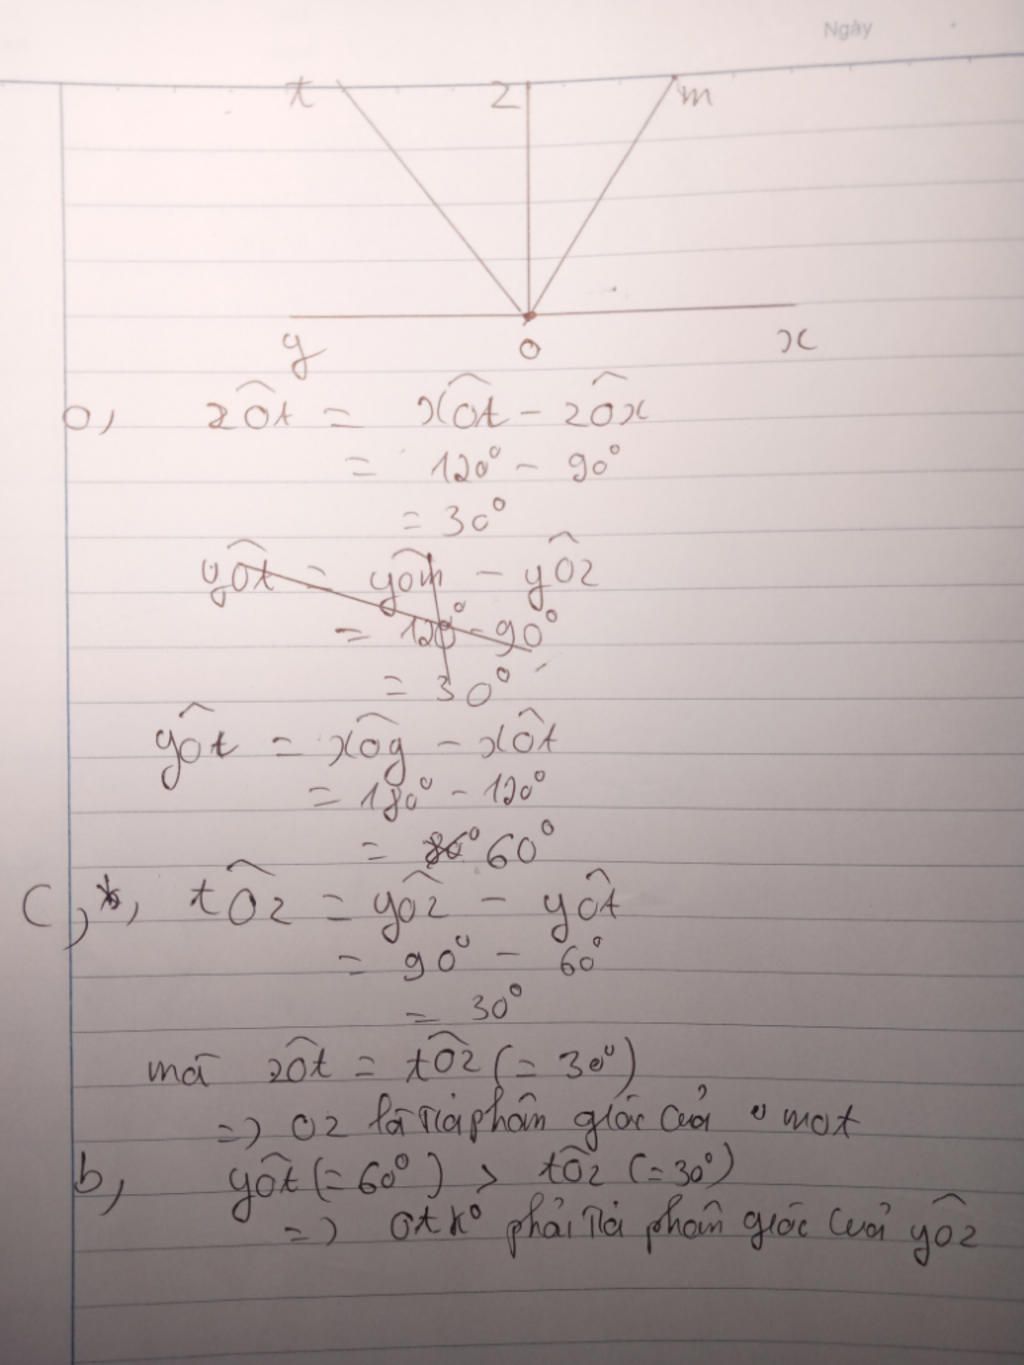 Ngày
t z m
y O x
a, zÔt = xÔt - zÔx
= 120° - 90°
= 30°
yÔt = yÔm - yÔz
= 120° - 90°
= 30°
yÔt = xÔy - xÔt
= 180° - 120°
= 60°
C, tÔz = yÔz - yÔt
= 90° - 60°
= 30°
mà zÔt = tÔz (= 30°)
=> Oz là tia phân giác của mot
b, yÔt (= 60°) > tÔz (= 30°)
=> ot k° phải tia phân giác của yÔz